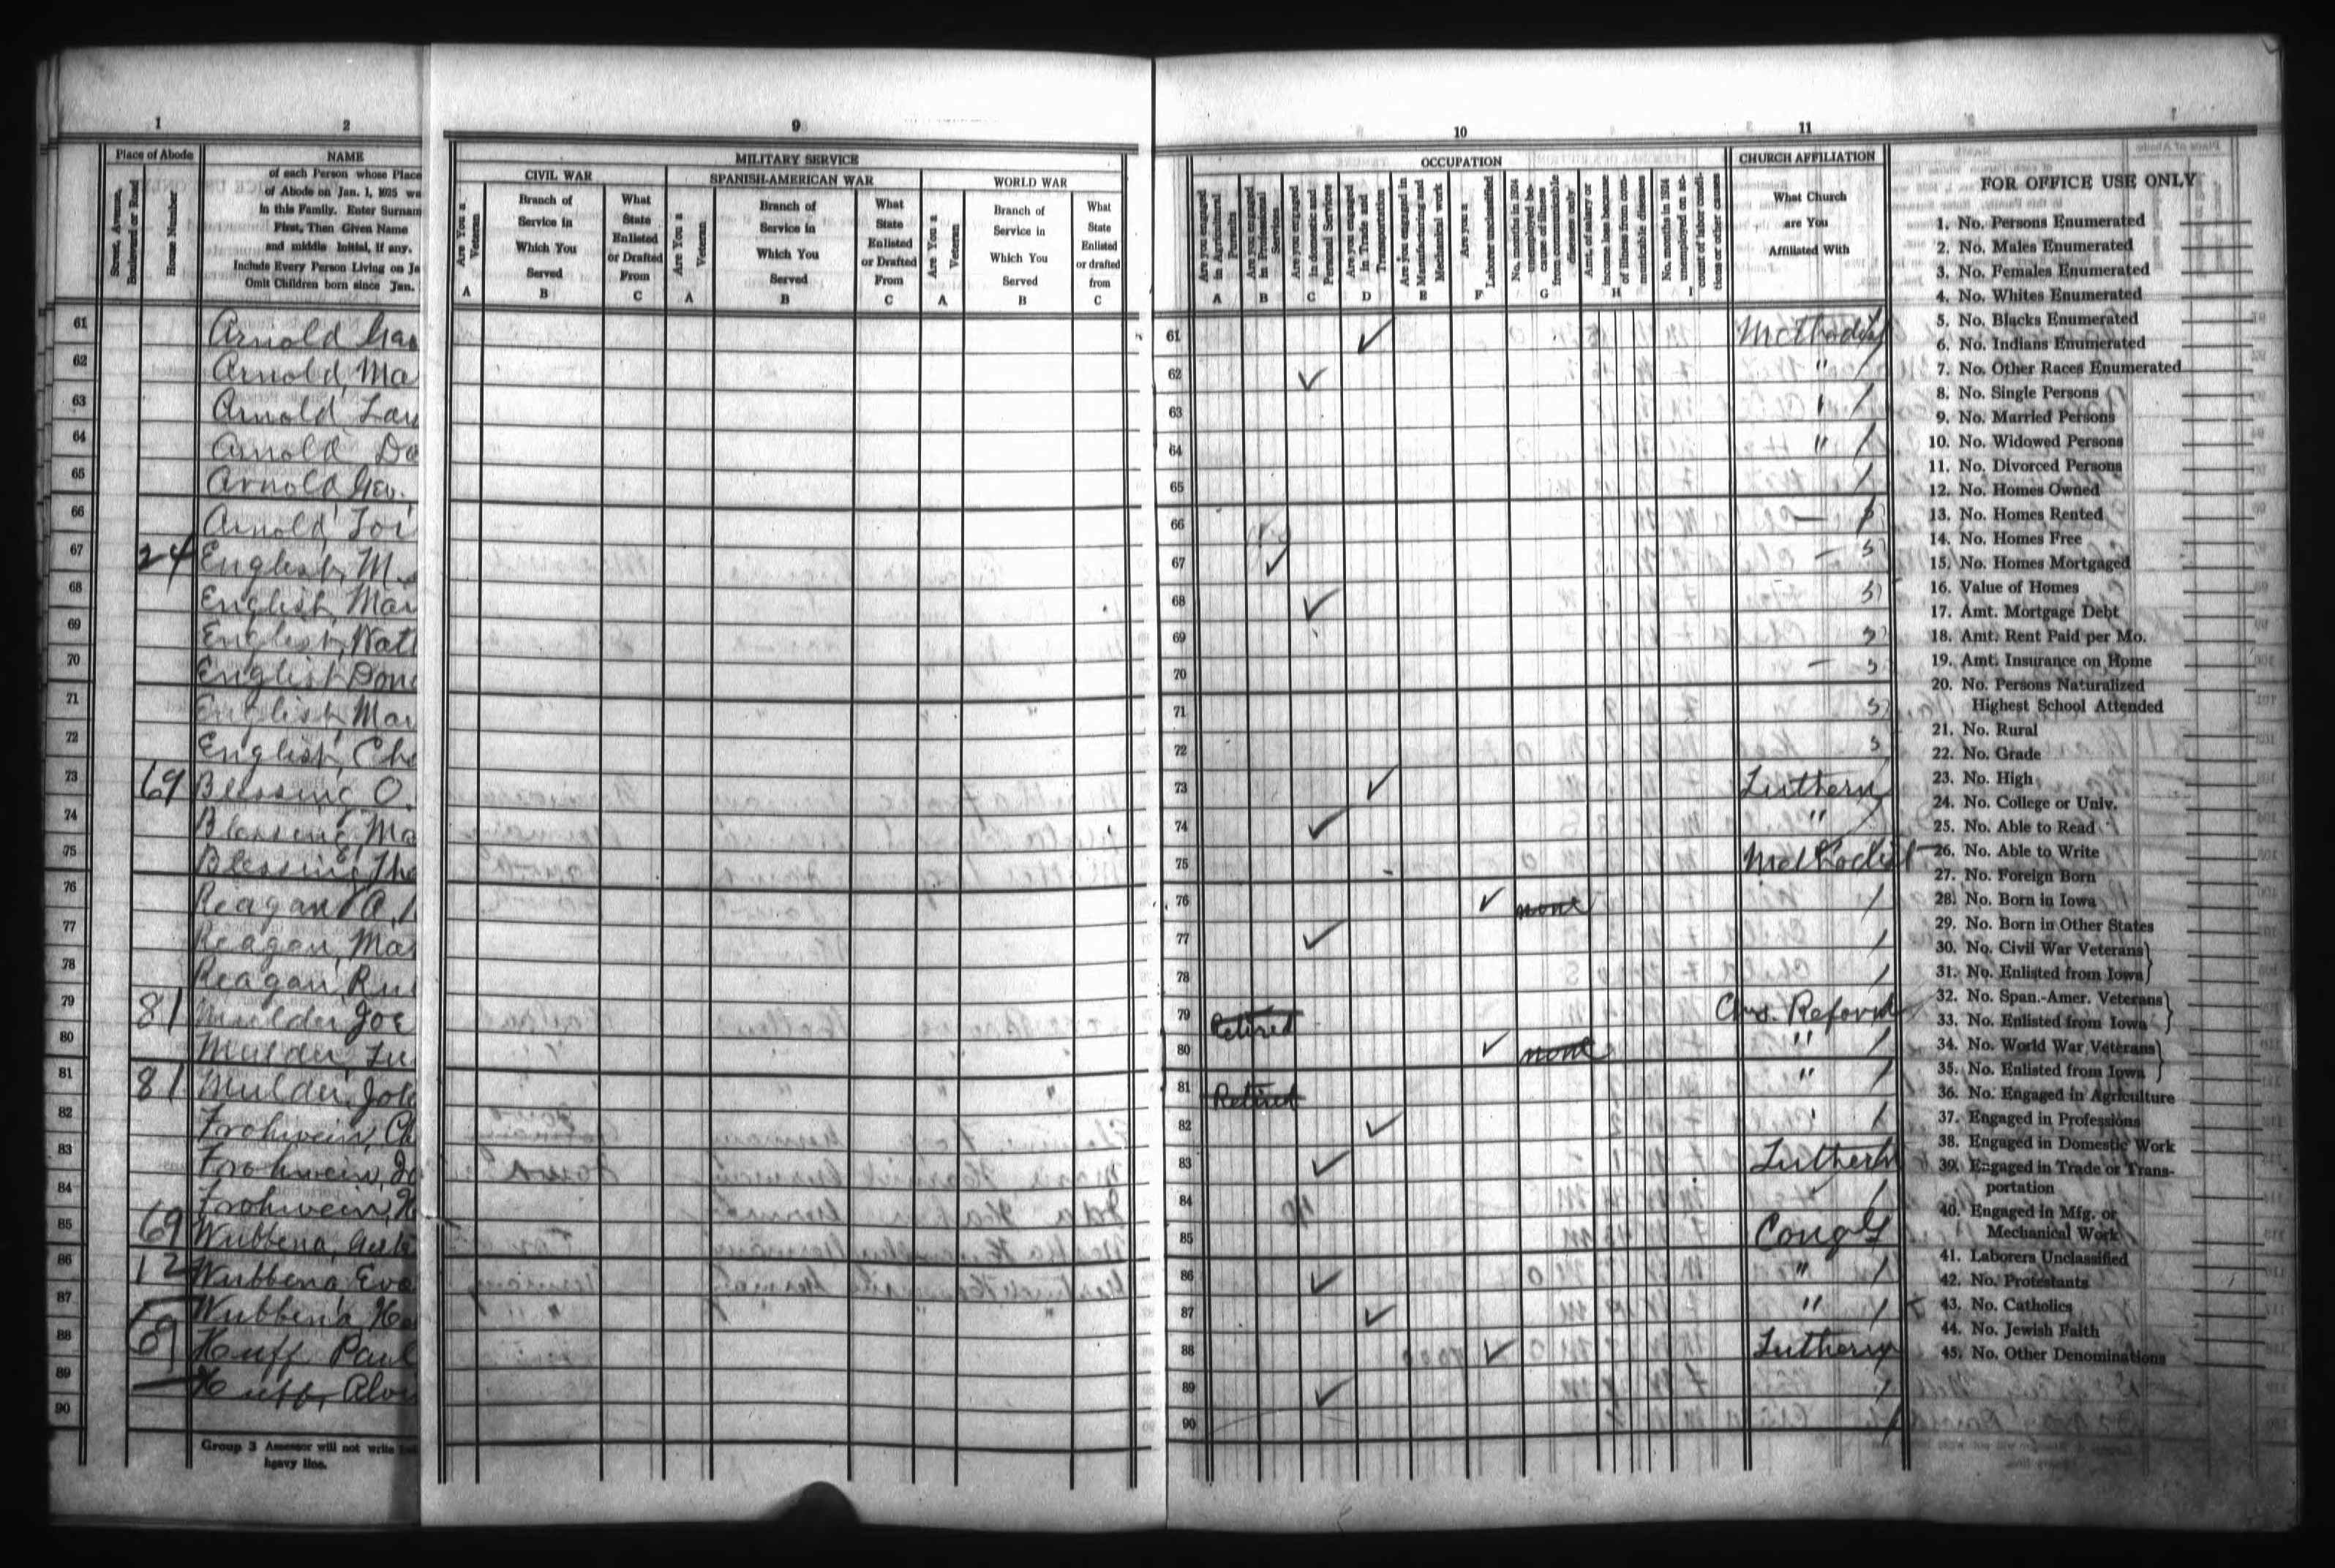 1 2
Place of Abode
Street, Avenue, Boulevard or Road
House Number
NAME
of each Person whose Place
of Abode on Jan. 1, 1925 wa
in this Family. Enter Surnam
First, Then Given Name
and middle Initial, if any.
Include Every Person Living on Ja
Omit Children born since Jan.
61 Arnold
62 Arnold, Ma
63 Arnold
64 Arnold Do
65 Arnold, Geo.
66 Arnold
67 24 English, M
68 English, Mar
69 English
70 English Don
71 English, Mar
72 English, Cha
73 69 Blessing O.
74 Blessing, Ma
75 Blessing, Tho
76 Reagan, A.
77 Reagan, Mar
78 Reagan, Ru
79 81 Mulder Joe
80 Mulder, Lu
81 81 Mulder, Joh
82 Frohwein, Ch
83 Frohwein,
84 Frohwein, H
85 69 Wubbena,
86 12 Wubbena, Eva
87 Wubbena, Ha
88 69 Huff Paul
89 Huff, Alv
90
Group 3 Assessor will not write
heavy line.
9
MILITARY SERVICE
CIVIL WAR
SPANISH-AMERICAN WAR
WORLD WAR
Are You a Veteran
A
Branch of
Service in
Which You
Served
B
What
State
Enlisted
or Drafted
From
C
Are You a Veteran
A
Branch of
Service in
Which You
Served
B
What
State
Enlisted
or Drafted
From
C
Are You a Veteran
A
Branch of
Service in
Which You
Served
B
What
State
Enlisted
or drafted
from
C
10
OCCUPATION
Are you engaged in Agricultural Pursuits
A
Are you engaged in Professional Services
B
Are you engaged in domestic and Personal Services
C
Are you engaged in Trade and Transportation
D
Are you engaged in Manufacturing and Mechanical work
E
Are you a Laborer unclassified
F
No. months in 1924 unemployed because of illness from communicable diseases only
G
Amt. of salary or income loss because of illness from communicable diseases
H
No. months in 1924 unemployed on account of labor conditions or other cases
I
11
CHURCH AFFILIATION
What Church
are You
Affiliated With
61 ✓ Methodist
62 ✓ "
63 "
64 "
65
66 —
67 ✓ —
68 ✓
69
70 —
71
72
73 ✓ Luthern
74 ✓ "
75 Methodist
76 ✓ none
77 ✓
78
79 Retired Chrs. Reform
80 ✓ none "
81 Retired "
82 ✓
83 ✓ Luthern
84
85 Congl
86 ✓ "
87 ✓ "
88 ✓ Luthern
89 ✓
90
FOR OFFICE USE ONLY
1. No. Persons Enumerated
2. No. Males Enumerated
3. No. Females Enumerated
4. No. Whites Enumerated
5. No. Blacks Enumerated
6. No. Indians Enumerated
7. No. Other Races Enumerated
8. No. Single Persons
9. No. Married Persons
10. No. Widowed Persons
11. No. Divorced Persons
12. No. Homes Owned
13. No. Homes Rented
14. No. Homes Free
15. No. Homes Mortgaged
16. Value of Homes
17. Amt. Mortgage Debt
18. Amt. Rent Paid per Mo.
19. Amt. Insurance on Home
20. No. Persons Naturalized
Highest School Attended
21. No. Rural
22. No. Grade
23. No. High
24. No. College or Univ.
25. No. Able to Read
26. No. Able to Write
27. No. Foreign Born
28. No. Born in Iowa
29. No. Born in Other States
30. No. Civil War Veterans
31. No. Enlisted from Iowa
32. No. Span.-Amer. Veterans
33. No. Enlisted from Iowa
34. No. World War Veterans
35. No. Enlisted from Iowa
36. No. Engaged in Agriculture
37. Engaged in Professions
38. Engaged in Domestic Work
39. Engaged in Trade or Trans-
portation
40. Engaged in Mfg. or
Mechanical Work
41. Laborers Unclassified
42. No. Protestants
43. No. Catholics
44. No. Jewish Faith
45. No. Other Denominations